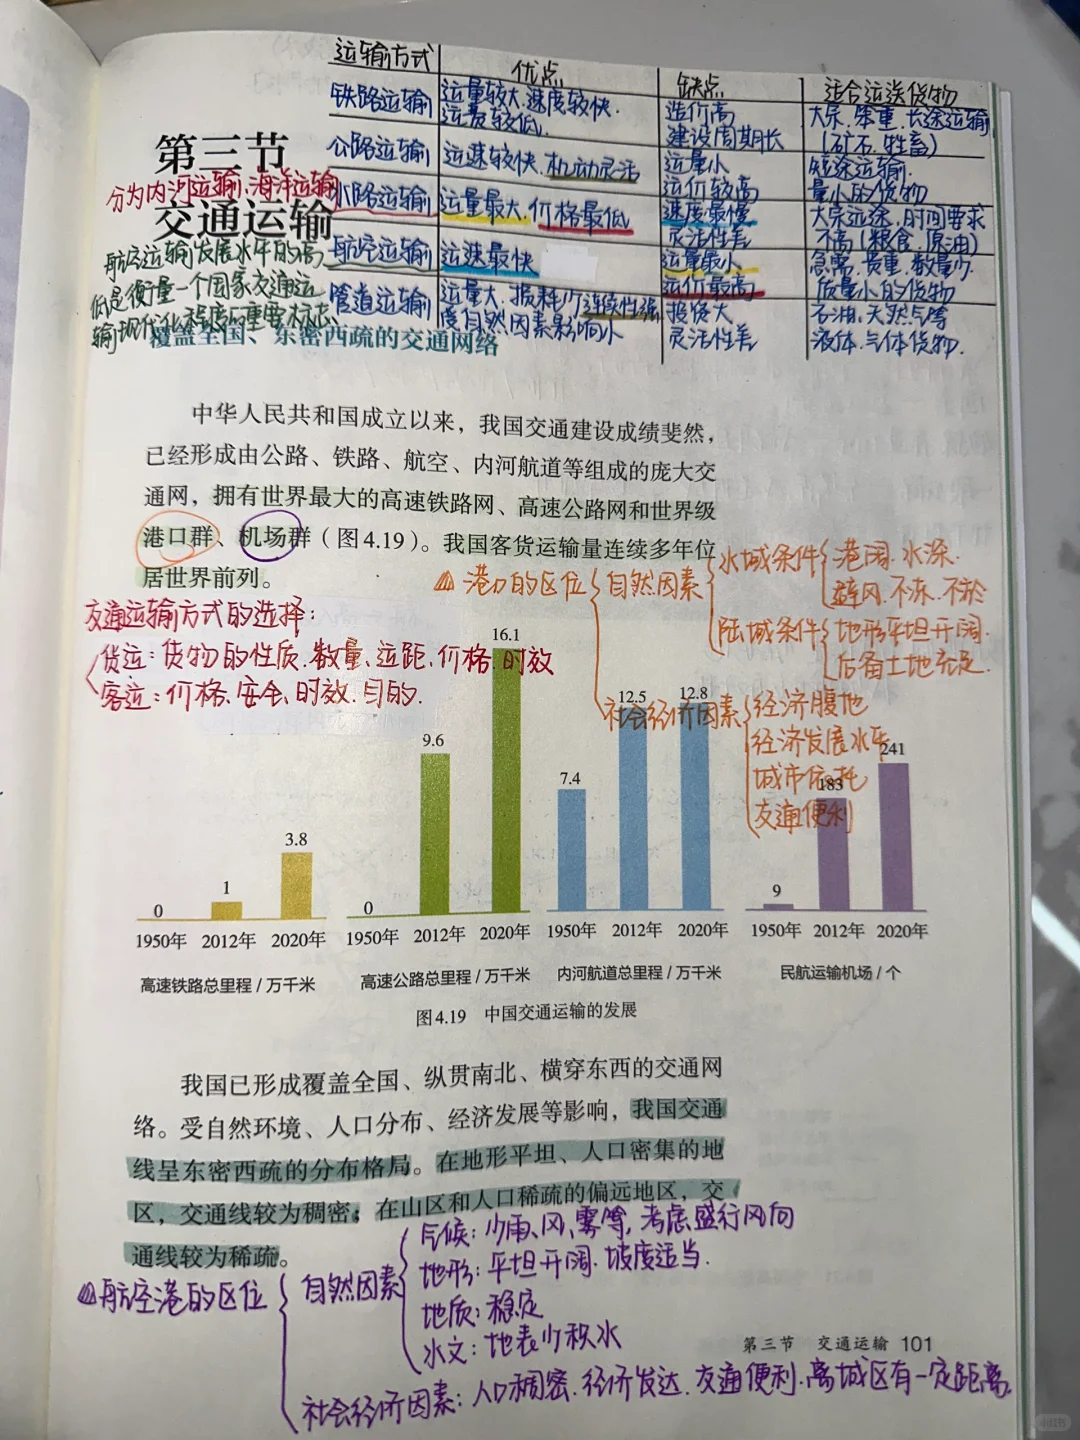 运输方式 优点 缺点 适合运送货物
铁路运输 运量较大.速度较快. 造价高 大宗.笨重.长途运输
运费较低. 建设周期长 (矿石.牲畜)
公路运输 运速较快.机动灵活 运量小 短途运输.
运价较高 量小的货物
水路运输 运量最大.价格最低 速度最慢 大宗远途.时间要求
灵活性差 不高(粮食.原油)
航空运输 运速最快 运量最小 急需.贵重.数量少.
运价最高 质量小的货物
管道运输 运量大.损耗少.连续性强 投资大 石油.天然气等
受自然因素影响小 灵活性差 液体.气体货物.
第三节
分为内河运输、海洋运输
交通运输
航空运输发展水平的高
低是衡量一个国家交通运
输现代化程度的重要标志
覆盖全国、东密西疏的交通网络
中华人民共和国成立以来，我国交通建设成绩斐然，
已经形成由公路、铁路、航空、内河航道等组成的庞大交
通网，拥有世界最大的高速铁路网、高速公路网和世界级
港口群、机场群（图4.19）。我国客货运输量连续多年位
居世界前列。
港口的区位 自然因素 水域条件 港阔.水深.
避风.不冻.不淤
陆域条件 地形平坦开阔.
后备土地充足.
社会经济因素 经济腹地
经济发展水平
城市依托
交通便利
交通运输方式的选择：
货运：货物的性质.数量、运距.价格.时效
客运：价格、安全、时效.目的.
0 1 3.8
1950年 2012年 2020年
高速铁路总里程 / 万千米
0 9.6 16.1
1950年 2012年 2020年
高速公路总里程 / 万千米
7.4 12.5 12.8
1950年 2012年 2020年
内河航道总里程 / 万千米
9 183 241
1950年 2012年 2020年
民航运输机场 / 个
图4.19 中国交通运输的发展
我国已形成覆盖全国、纵贯南北、横穿东西的交通网
络。受自然环境、人口分布、经济发展等影响，我国交通
线呈东密西疏的分布格局。在地形平坦、人口密集的地
区，交通线较为稠密；在山区和人口稀疏的偏远地区，交
通线较为稀疏。
航空港的区位 自然因素 气候：少雨、风、雾等，考虑盛行风向
地形：平坦开阔.坡度适当.
地质：稳定
水文：地表少积水
社会经济因素：人口稠密.经济发达.交通便利.离城区有一定距离.
第三节 交通运输 101
小红书